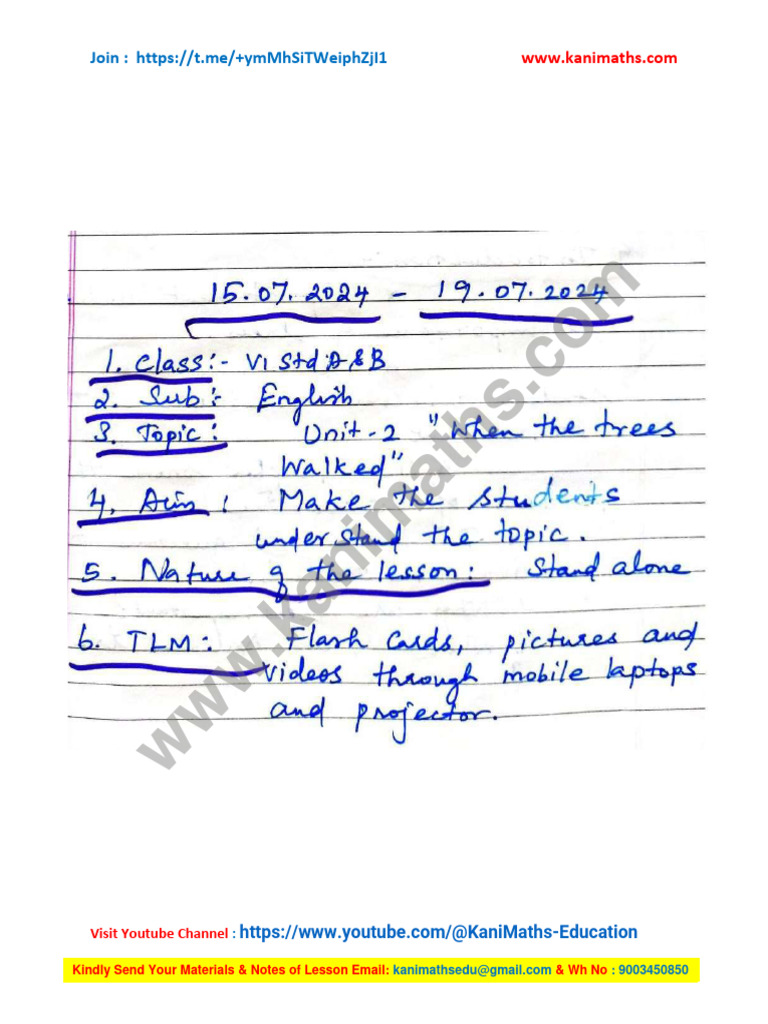 Join : https://t.me/+ymMhSiTWeiphZjI1 www.kanimaths.com
15.07.2024 - 19.07.2024
1. Class:- VI Std A & B
2. Sub:- English
3. Topic: Unit-2 "When the trees
Walked"
4. Aim: Make the students
understand the topic.
5. Nature of the lesson: Stand alone
6. TLM: Flash Cards, pictures and
videos through mobile laptops
and projector.
www.kanimaths.com
Visit Youtube Channel : https://www.youtube.com/@KaniMaths-Education
Kindly Send Your Materials & Notes of Lesson Email: kanimathsedu@gmail.com & Wh No : 9003450850